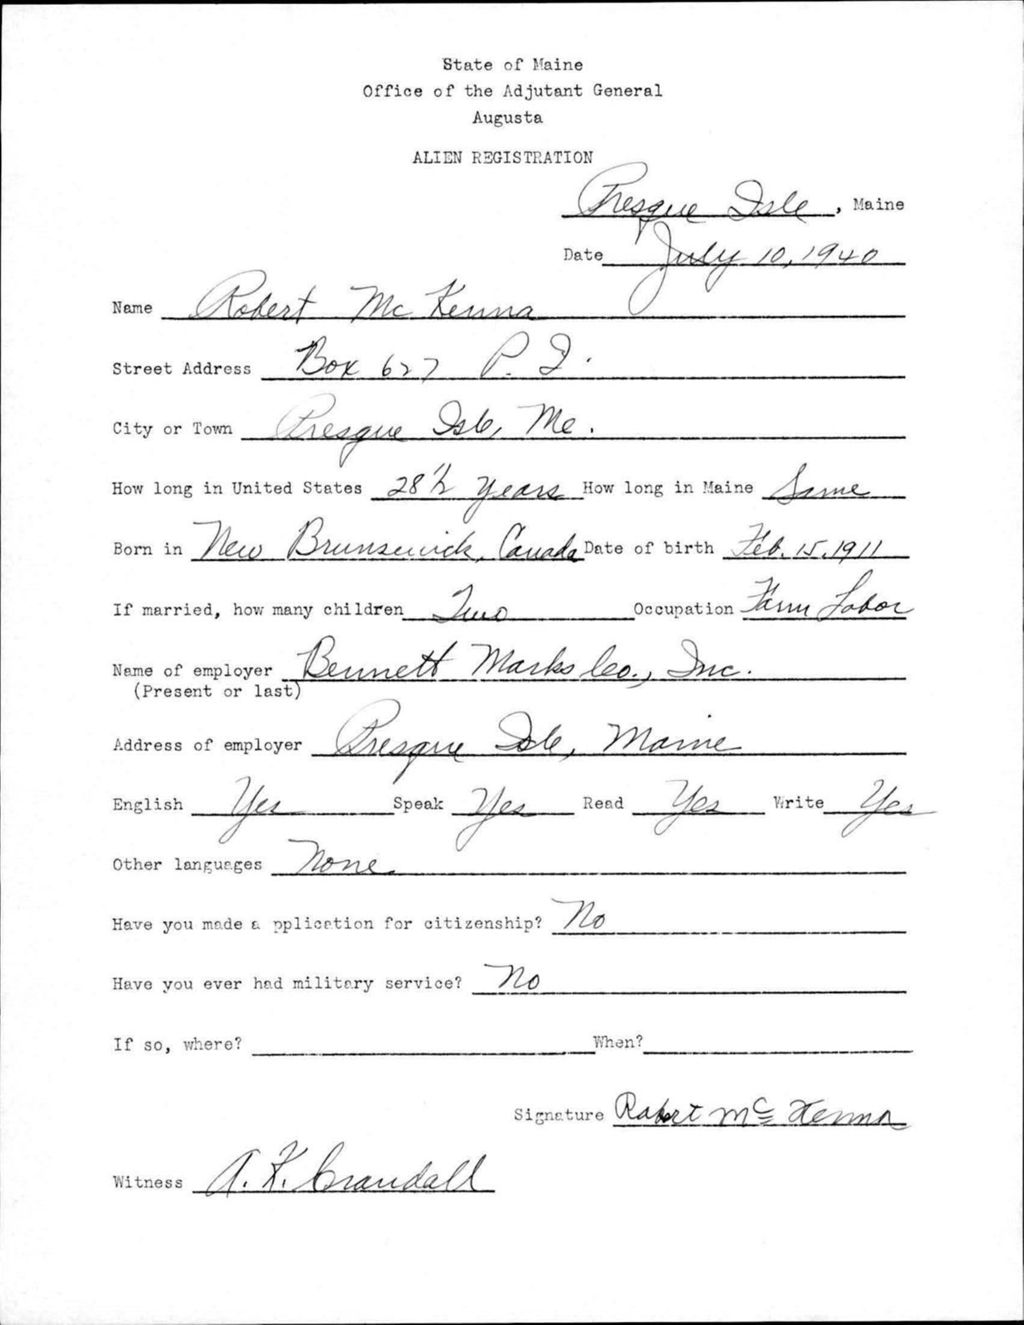 State of Maine
Office of the Adjutant General
Augusta
ALIEN REGISTRATION
Presque Isle, Maine
Date July 10, 1940
Name Robert Mc Kenna
Street Address Box 627 P. I.
City or Town Presque Isle, Me.
How long in United States 28 1/2 years How long in Maine Same
Born in New Brunswick, Canada Date of birth Feb. 15, 1911
If married, how many children Two Occupation Farm Labor
Name of employer Bennett Marks Co., Inc.
(Present or last)
Address of employer Presque Isle, Maine
English Yes Speak Yes Read Yes Write Yes
Other languages None
Have you made a pplication for citizenship? No
Have you ever had military service? No
If so, where? When?
Signature Robert Mc Kenna
Witness A. K. Crandall